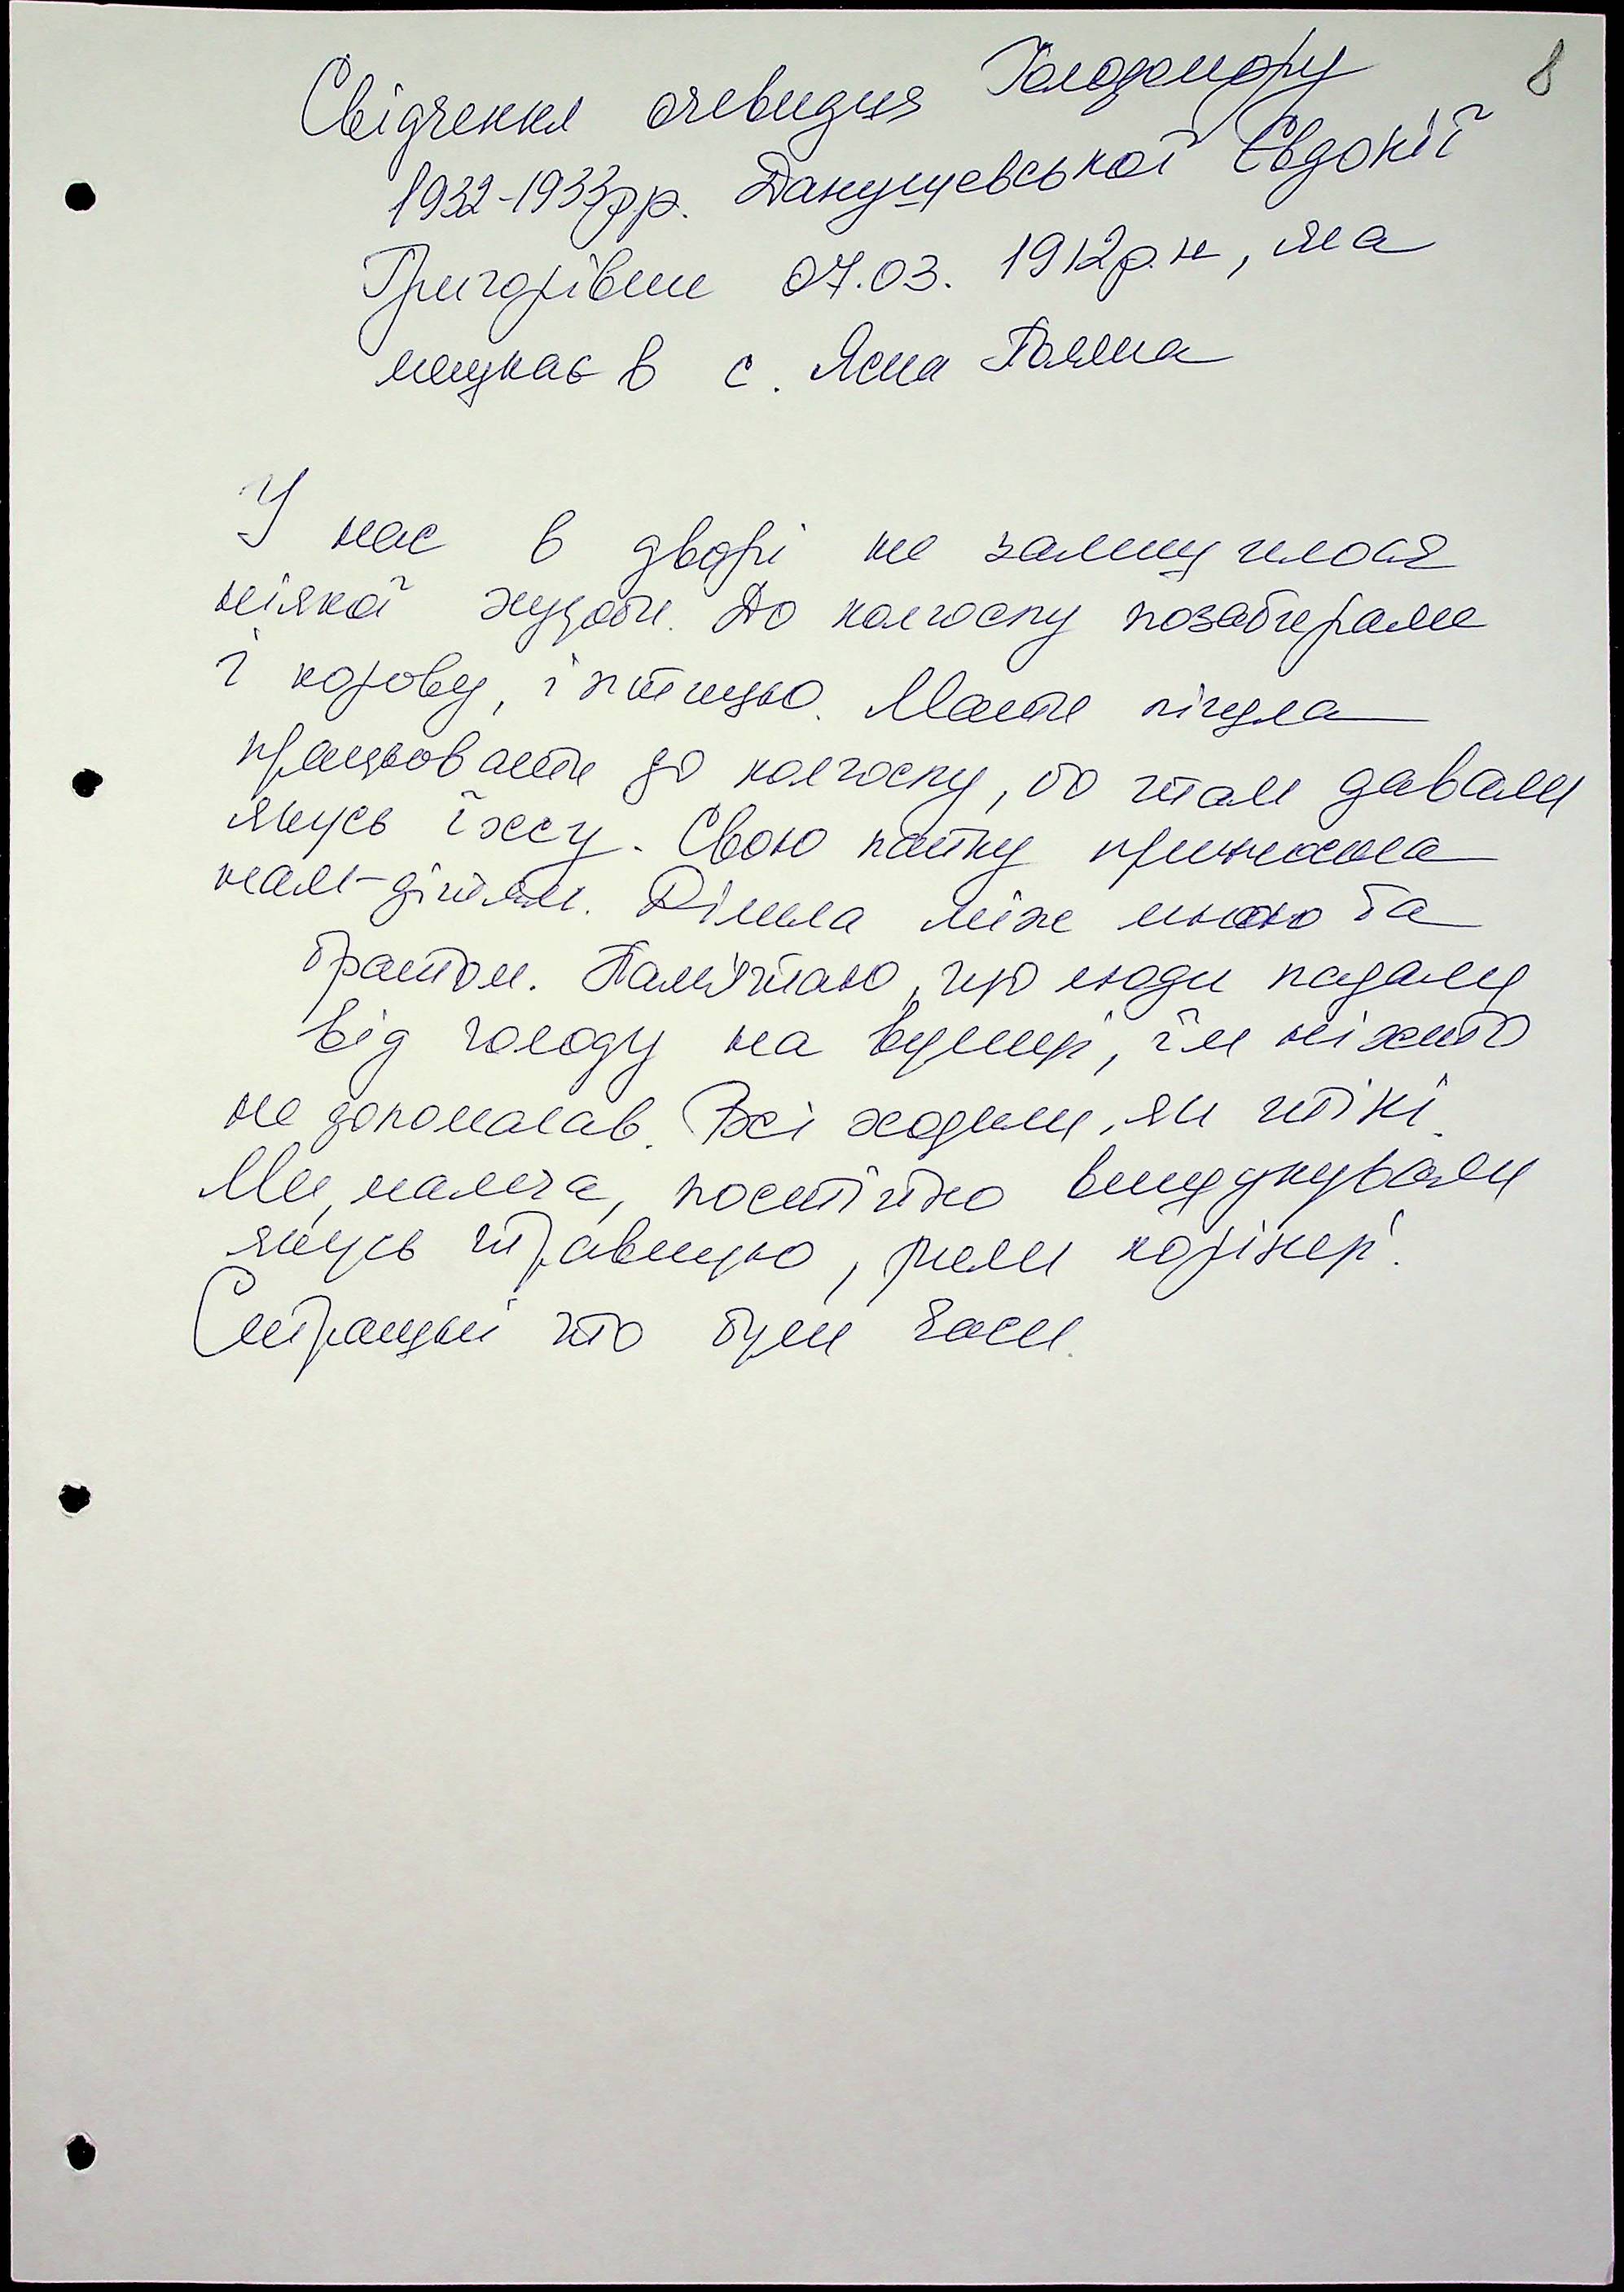 8
Свідчення очевидця Голодомору
1932-1933рр. Данушевської Євдокії
Григорівни 07.03. 1912р.н, яка
мешкає в с. Ясна Поляна
У нас в дворі не залишилося
ніякої худоби. До колгоспу позабирали
і корову, і птицю. Мати пішла
працювати до колгоспу, бо там давали
якусь їжу. Свою пайку приносила
нам-дітям. Ділила між мною та
братом. Пам'ятаю, що люди падали
від голоду на вулиці, їм ніхто
не допомагав. Всі ходили, як тіні.
Ми, малеча, постійно вишукували
якусь травицю, рили корінці.
Страшні то були часи.